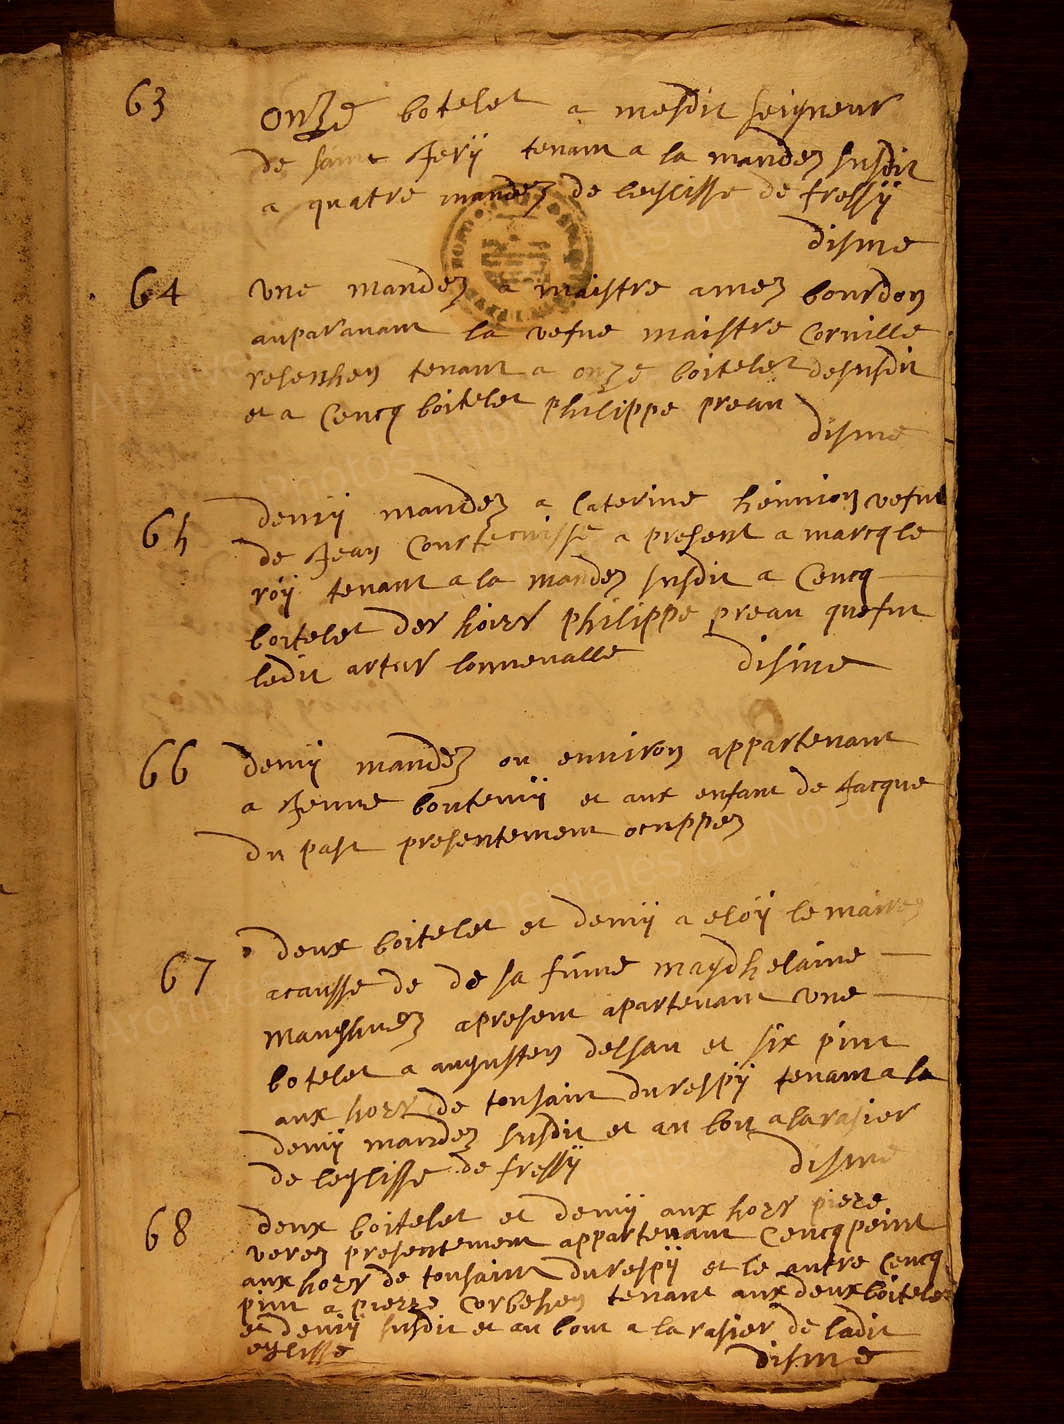 63
Onze botelet a mesdit seigneur
de saint Jery tenant a la mandez susdit
a quatre mandez de leglisse de fressÿ
disme
64
une mandez a maistre amez bourdon
auparavant la vefue maistre Cornille
tenant a onze boitelet desusdit
et a Cencq boitelet philippe preau
disme
65
demÿ mandez a Caterine hennion vefue
de Jean a present a marcq le
roÿ tenant a la mandez susdit a Cencq
boitelet der hoirs philippe preau que fut
ledit artur lonnevalle
disme
66
demÿ mandez ou environ appartenant
a Jenne boutemÿ et aux enfant de Jacque
du past presentement ocuppez
67
deux boitelet et demÿ a eloÿ le
acausse de de sa fame magdhelaine
apresent apartenant une
botelet a augusten delsau et six pint
aux hoers de tousaint durespÿ tenant a la
demÿ mandez susdit et au bout a la rasier
de leglisse de fressÿ
disme
68
deux boitelet et demÿ aux hoers piere
verez presentement appartenant Cencq peint
aux hoers de tousaint durespÿ et le autre Cencq
pint a pierre Corbehen tenant aux deux boitelez
et demÿ susdit et au bout a la rasier de ladit
eglisse
disme